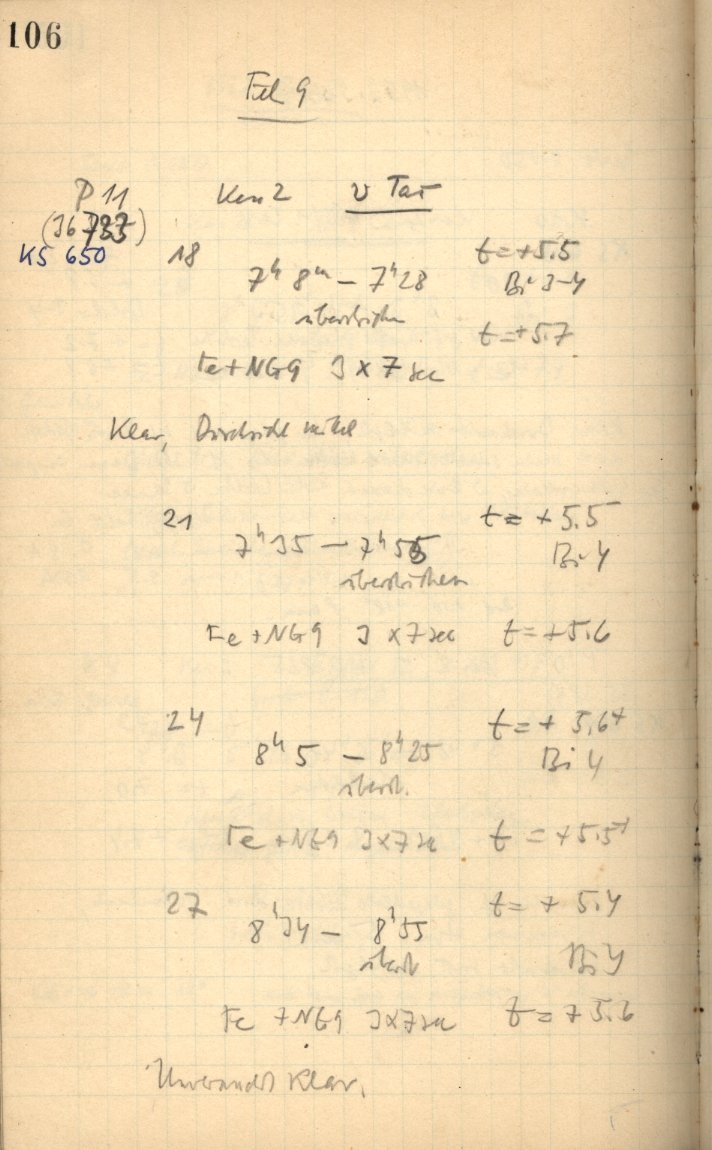 106
Feb 9
P 11 Kam 2 υ Tau
(36733)
KS 650
18 7h 8m – 7h 28 t=+5.5
Bi 3-4
überstrichen t=+5.7
Fe+NG9 3 x 7 sec
Klar, Durchsicht mittel
21 7h 35 – 7h 55 t = +5.5
Bi 4
überstrichen
Fe+NG9 3 x 7 sec t=+5.6
24 8h 5 – 8h 25 t = + 5.6+
Bi 4
überstr.
Fe+NG9 3x7 sec t = +5.5+
27 8h 34 – 8h 55 t = + 5.4
überstr Bi 4
Fe +NG9 3x7 sec t = + 5.6
Unverändert klar.